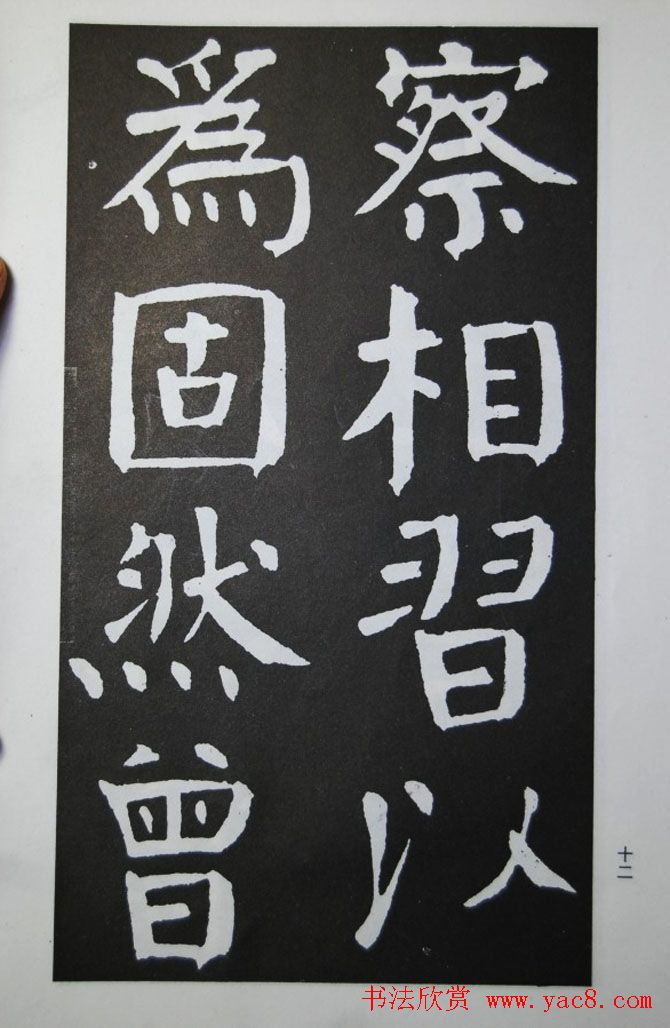 察相習以
爲固然曾
十二
书法欣赏 www.yac8.com